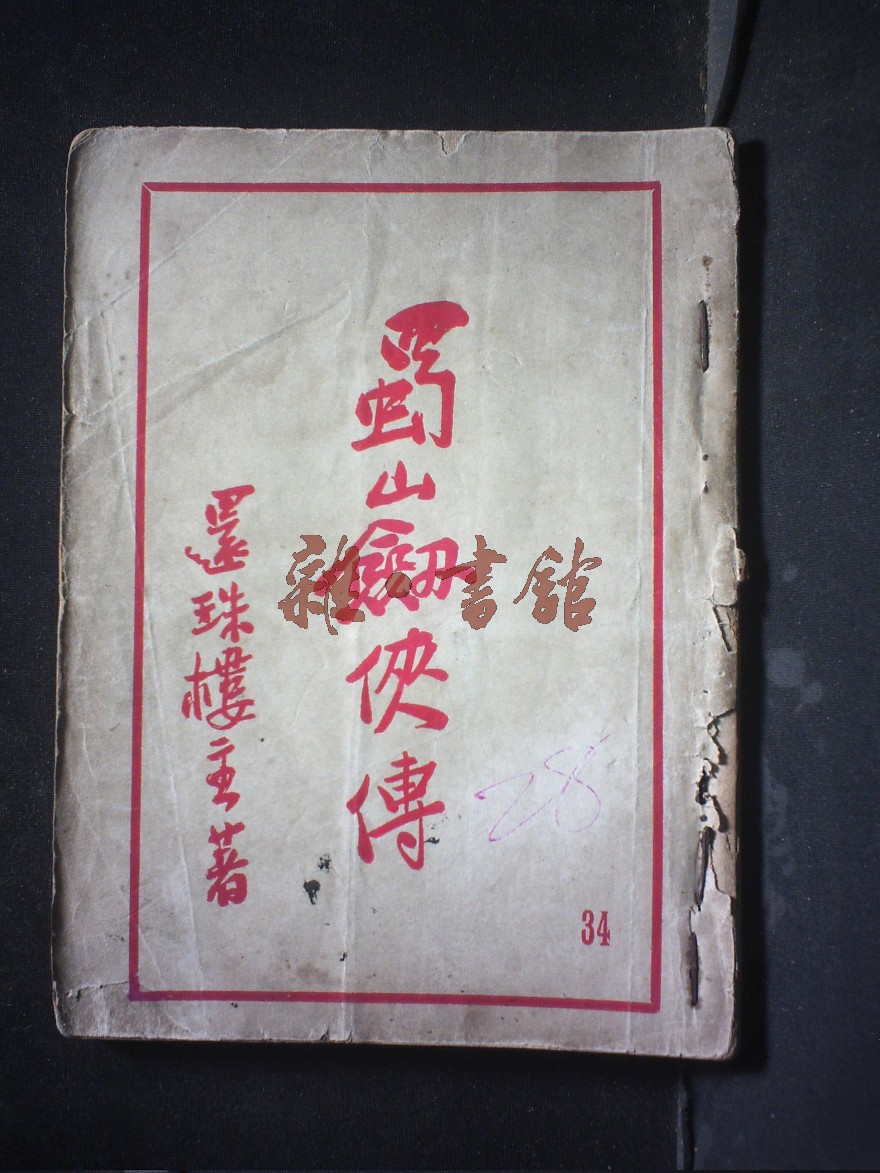 蜀山劒俠傳
還珠樓主著
雜·書館
28
34